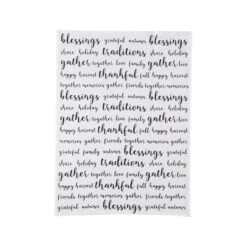 blessings grateful autumn blessings
share holiday traditions share holiday
gather together love family gather
happy harvest thankful fall happy harvest
together memories friends home together memories
blessings grateful autumn blessings
share holiday traditions share holiday
gather together love family gather
together memories thankful fall happy harvest
happy harvest friends home together memories
grateful autumn blessings grateful autumn
share holiday traditions share holiday
gather together love family gather together
happy harvest thankful fall happy harvest
together memories friends home together memories
grateful autumn blessings grateful autumn